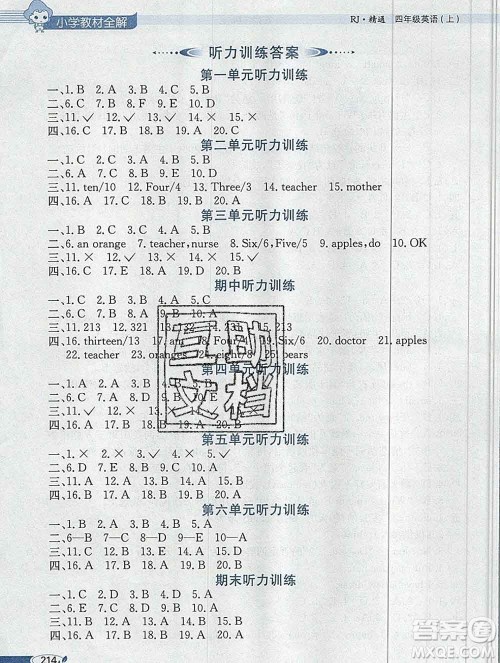 小学教材全解
RJ·精通 四年级英语(上)
听力训练答案
第一单元听力训练
一、1.B 2.A 3.C 4.C 5.B
二、6.C 7.B 8.F 9.E 10.D
三、11.✓ 12.✓ 13.✓ 14.× 15.×
四、16.C 17.B 18.B 19.A 20.C
第二单元听力训练
一、1.C 2.C 3.A 4.B 5.B
二、6.B 7.C 8.A 9.E 10.D
三、11.ten/10 12.Four/4 13.Three/3 14.teacher 15.mother
四、16.B 17.A 18.C 19.A 20.C
第三单元听力训练
一、1.C 2.B 3.C 4.A 5.B
二、6.an orange 7.teacher,nurse 8.Six/6,Five/5 9.apples,do 10.OK
三、11.× 12.× 13.✓ 14.✓ 15.×
四、16.C 17.E 18.B 19.D 20.A
期中听力训练
一、1.C 2.B 3.D 4.A 5.E
二、6.C 7.A 8.B 9.C 10.A
三、11.213 12.321 13.
四、16.thirteen/13 17. 20.doctor 21.apples
22.teacher 23.oranges 25.bears
第四单元听力训练
一、1.C 2.B 3.B
二、6.E 7.D 8.C
三、11.✓ 12.✓ 13.
四、16.A 17.B 18.C 19.A 20.A
第五单元听力训练
一、1.× 2.× 3.✓ 4.✓ 5.×
二、6.D 7.E 8.C 9.A 10.B
三、11.E 12.D 13.A 14.B 15.C
四、16.B 17.C 18.A 19.B 20.A
第六单元听力训练
一、1.B 2.A 3.A 4.A 5.B
二、6—B 7—C 8—D 9—E 10—A
三、11.D 12.E 13.C 14.B 15.A
四、16.A 17.A 18.B 19.A 20.A
期末听力训练
一、1.B 2.A 3.A 4.B 5.A
二、6.C 7.B 8.E 9.A 10.D
三、11.B 12.C 13.A 14.E 15.D
四、16.C 17.B 18.A 19.B 20.A
214
互助
文档
答案圈
MXQE.COM